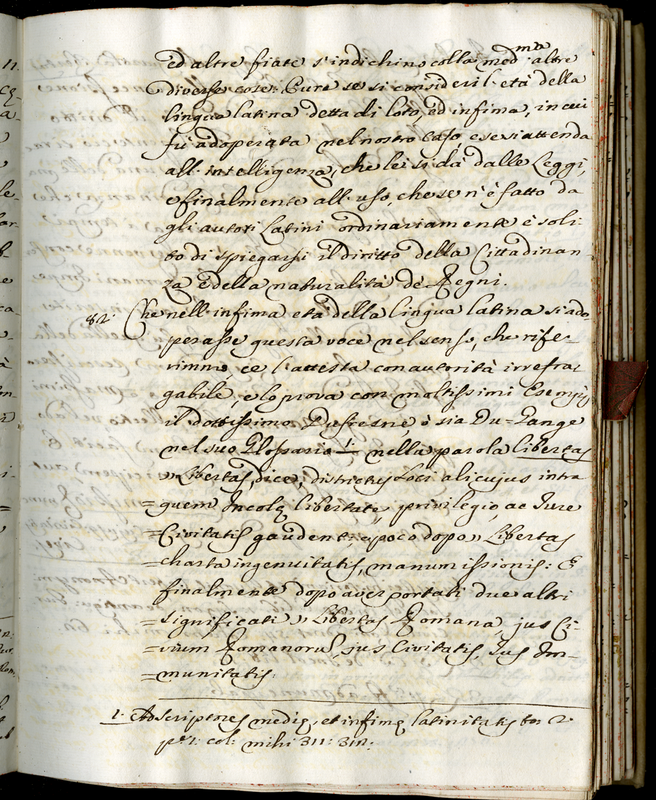 ed altre fiate s'indichino colla med.ma altre
diverse cose: Pure se si consideri l'età della
lingua latina detta di loto, ed infima, in cui
fù adoperata nel nostro caso, e se si attenda
all'intelligenza, che le si dà dalle Leggi,
e finalmente all'uso, che se n'è fatto da
gli autori Latini ordinariamente è soli-
to di spiegarsi il diritto della Cittadinan-
za, e della naturalità de' Regni.
82. Che nell'infima età della lingua latina si ado-
perasse questa voce nel senso, che rife-
rimmo, ce l'attesta con autorità irrefra-
gabile, e lo prova con moltissimi Esempij
il dottissimo Dufresne, ò sia Du-Cange
nel suo Glossario 1. nella parola libertas
„ Libertas, dice, districtus Loci alicujus intra
= quem Incolę libertate, privilegio, ac Jure
= Civitatis gaudent: e poco dopo „ Libertas
= charta ingenuitatis, manumissionis: E
finalmente dopo aver portati due altri
= significati „ Libertas Romana, jus Ci-
= vium Romanorũ, jus Civitatis, Jus Im-
= munitatis.
1. Ad Scriptores medię, et infimę latinitatis tom 2.
p.e 1. col. mihi 311: 312.